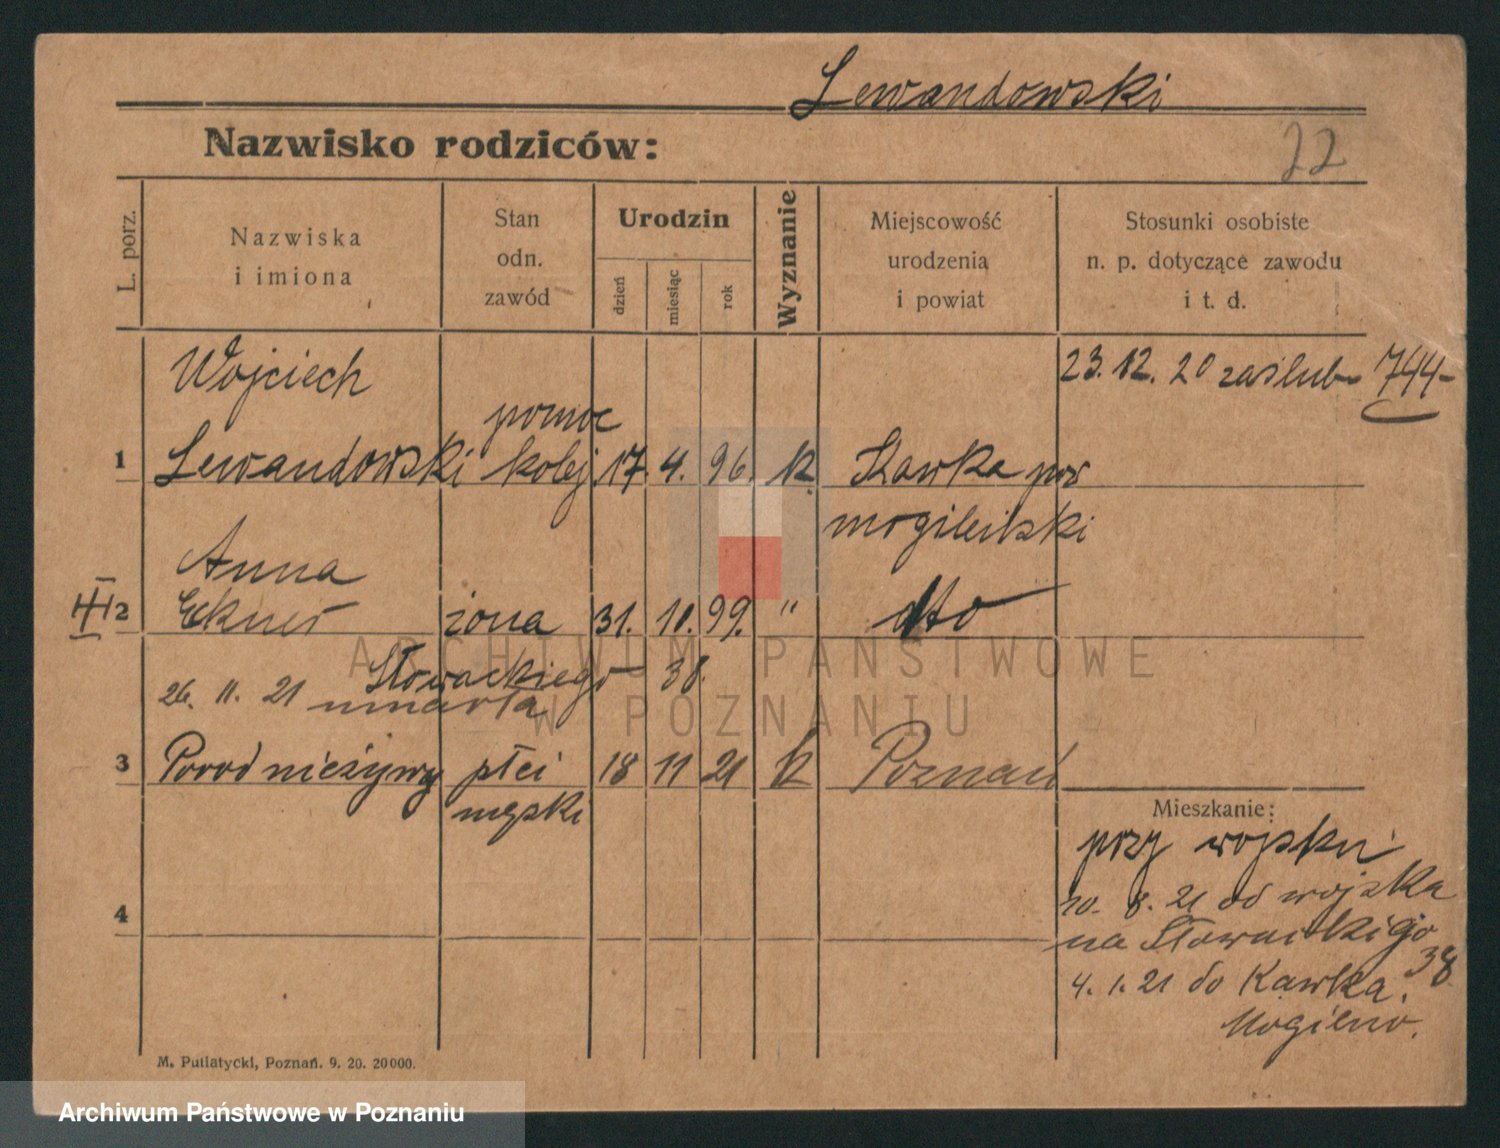 Lewandowski
Nazwisko rodziców:
22
L. porz.
Nazwiska
i imiona
Stan
odn.
zawód
Urodzin
dzień
miesiąc
rok
Wyznanie
Miejscowość
urodzenia
i powiat
Stosunki osobiste
n. p. dotyczące zawodu
i t. d.
Wojciech
23. 12. 20 zaślub 744-
pomoc
1 Lewandowski kolej 17. 4. 96. k pow
mogileński
Anna
III 2 żona 31. 10. 99. " dto
Słowackiego 38.
26. 11. 21 umarła
3 Poród nieżywy płci 18 11 21 k Poznań
męski
Mieszkanie:
przy wojsku
10. 8. 21 od wojska
na Słowackiego
38
4
4. 1. 21 do Kawka.
Mogilno.
M. Putiatycki, Poznań. 9. 20. 20000.
ARCHIWUM PAŃSTWOWE
W POZNANIU
Archiwum Państwowe w Poznaniu